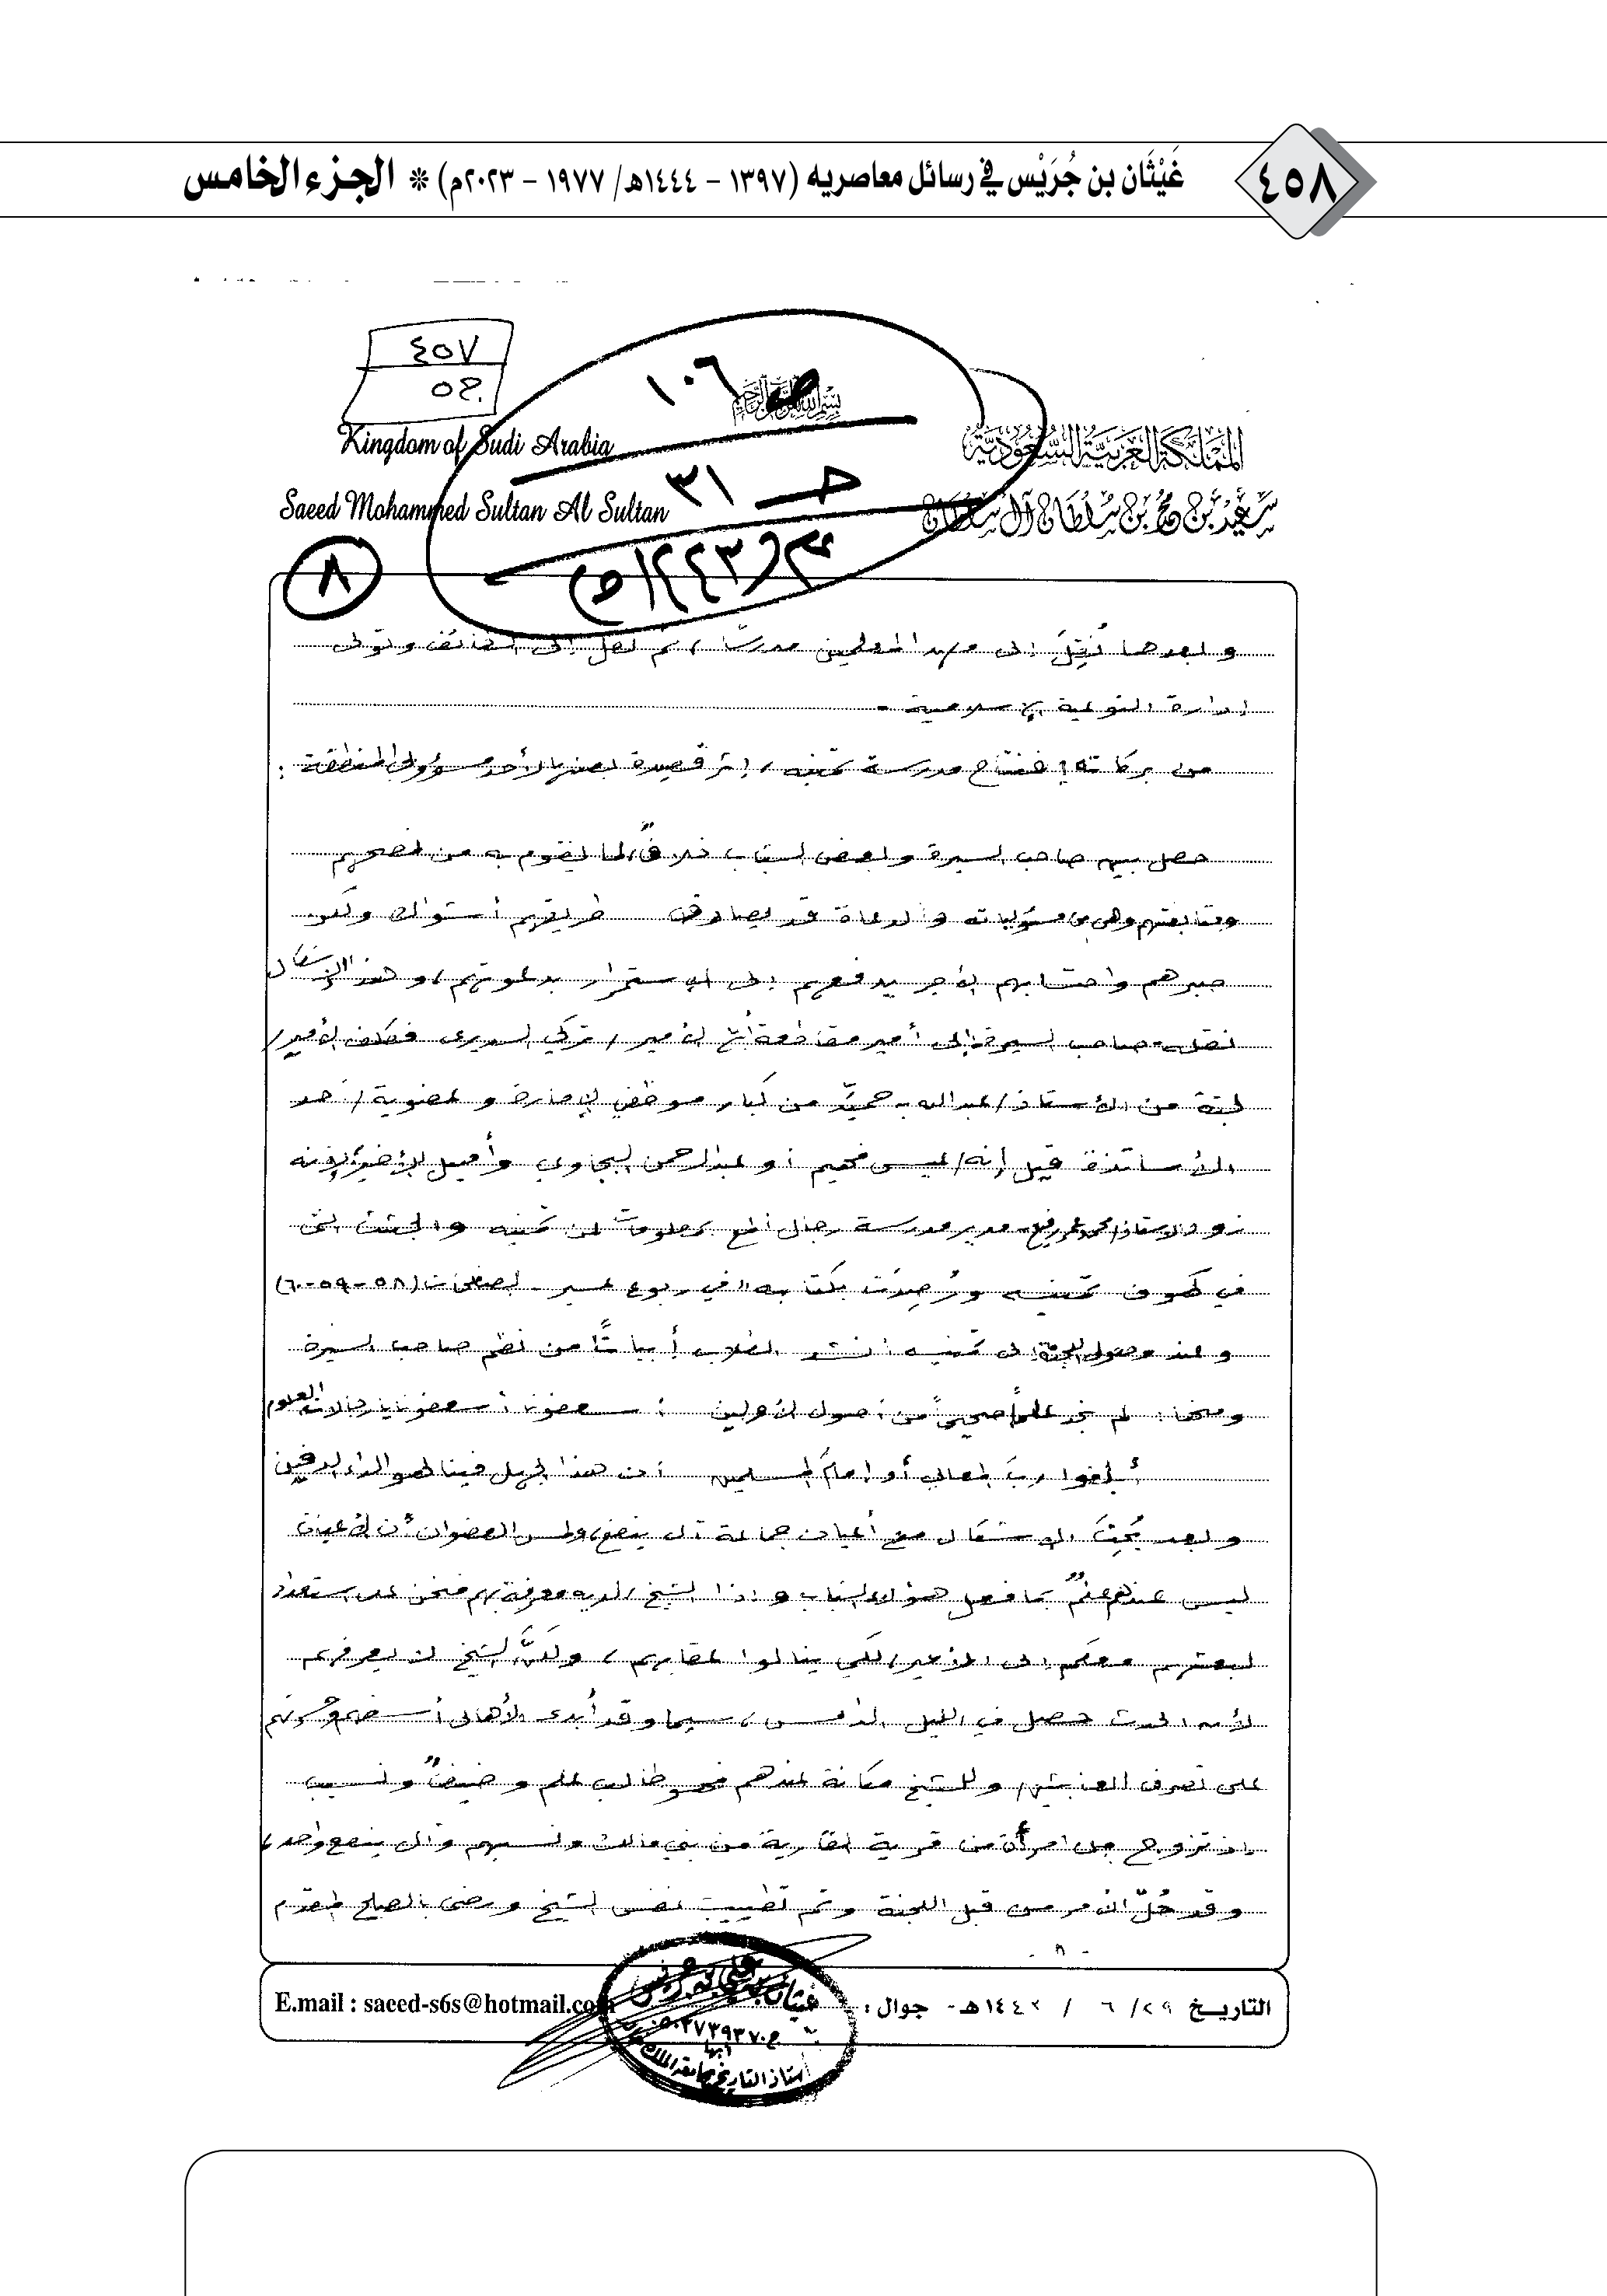 ٤٥٨
غَيْثَان بن جُرَيْس في رسائل معاصريه (١٣٩٧ – ١٤٤٤هـ/ ١٩٧٧ – ٢٠٢٣م) * الجزء الخامس
٤٥٧
٥٢٠
١٠٦
بسم الله الرحمن الرحيم
Kingdom of Sudi Arabia
المملكة العربية السعودية
Saeed Mohammed Sultan Al Sultan
سعيد بن محمد بن سلطان آل سلطان
حـ ٣١
١٤٤٣هـ
٨
وبعدها نُقِلَ إلى معهد المعلمين مدرسًا، ثم نقل إلى الطائف وتولى
إدارة التوعية الإسلامية .
من بركاته افتتاح مدرسة تمنيه، إثر قصيدة بعثها لأحد مسؤولي المنطقة :
حصل بينهم صاحب السيرة وبعض الشباب خلافٌ، لما يقوم به من نصحهم
ومتابعتهم وهي من مسئولياته والدعاة قد يصادف طريقهم أشواك ولكن
صبرهم واحتسابهم الأجر يدفعهم إلى الاستمرار بدعوتهم، وهذا الإشكال
نقله صاحب السيرة إلى أمير مقاطعة أبها الأمير/ تركي السديري فكلف الأمير/
لجنة من الأستاذ/ عبدالله بن حميّد من كبار موظفي الإمارة وعضوية/ أحد
الأساتذة قيل إنه/ عيسى فهيم أو عبدالرحمن البجاوي وأميل للأخير، لأنه
زود الأستاذ/ محمد عمر رفيع مدير مدرسة رجال ألمع بمعلومات عن تمنيه والجثث التي
في كهوف تمنيه ورُصِدَت بكتابه "في ربوع عسير" لصفحات (٥٨-٥٩-٦٠)
وعند وصول اللجنة إلى تمنيه أنشد الطلاب أبياتًا من نظم صاحب السيرة
ومنها : لم نجد علمًا صحيحًا من أصول الأولين : أسعفونا أسعفونا يا رجالات العلوم
أبلغوا ربَّ المعالي أو إمام المسلمين أن هذا الجهل فينا لهو الداء الدفين
وبعد بُحِثَ الإشكال مع أعيان جماعة آل ينفع، ولمس العضوان أن الأعيان
ليس عندهم علمٌ بما فعل هؤلاء الشباب وإذا الشيخ/ لديه معرفة بهم فنحن على استعداد
لبعثهم معكم إلى الأمير، لكي ينالوا عقابهم، ولكنَّ الشيخ لن يعرفهم
لأن الحدث حصل في الليل الدامس، سيما وقد أبدى الأهالي أسفهم وحسرتهم
على تصرف العابثين، وللشيخ مكانة عندهم فهو طالب علم وضيفٌ ونسيب
إذ تزوج من امرأة من قرية القارية من بني مالك ونسبهم وآل ينفع واحد،
وقد حُلَّ الأمر من قبل اللجنة وتم تطييب نفس الشيخ ورضي بالصلح المقدّم
- ٨ -
التاريخ ٢٩ / ٦ / ١٤٤٣هـ - جوال :
E.mail : saeed-s6s@hotmail.com
غيثان بن علي بن جريس
أبها
أستاذ التاريخ بجامعة الملك